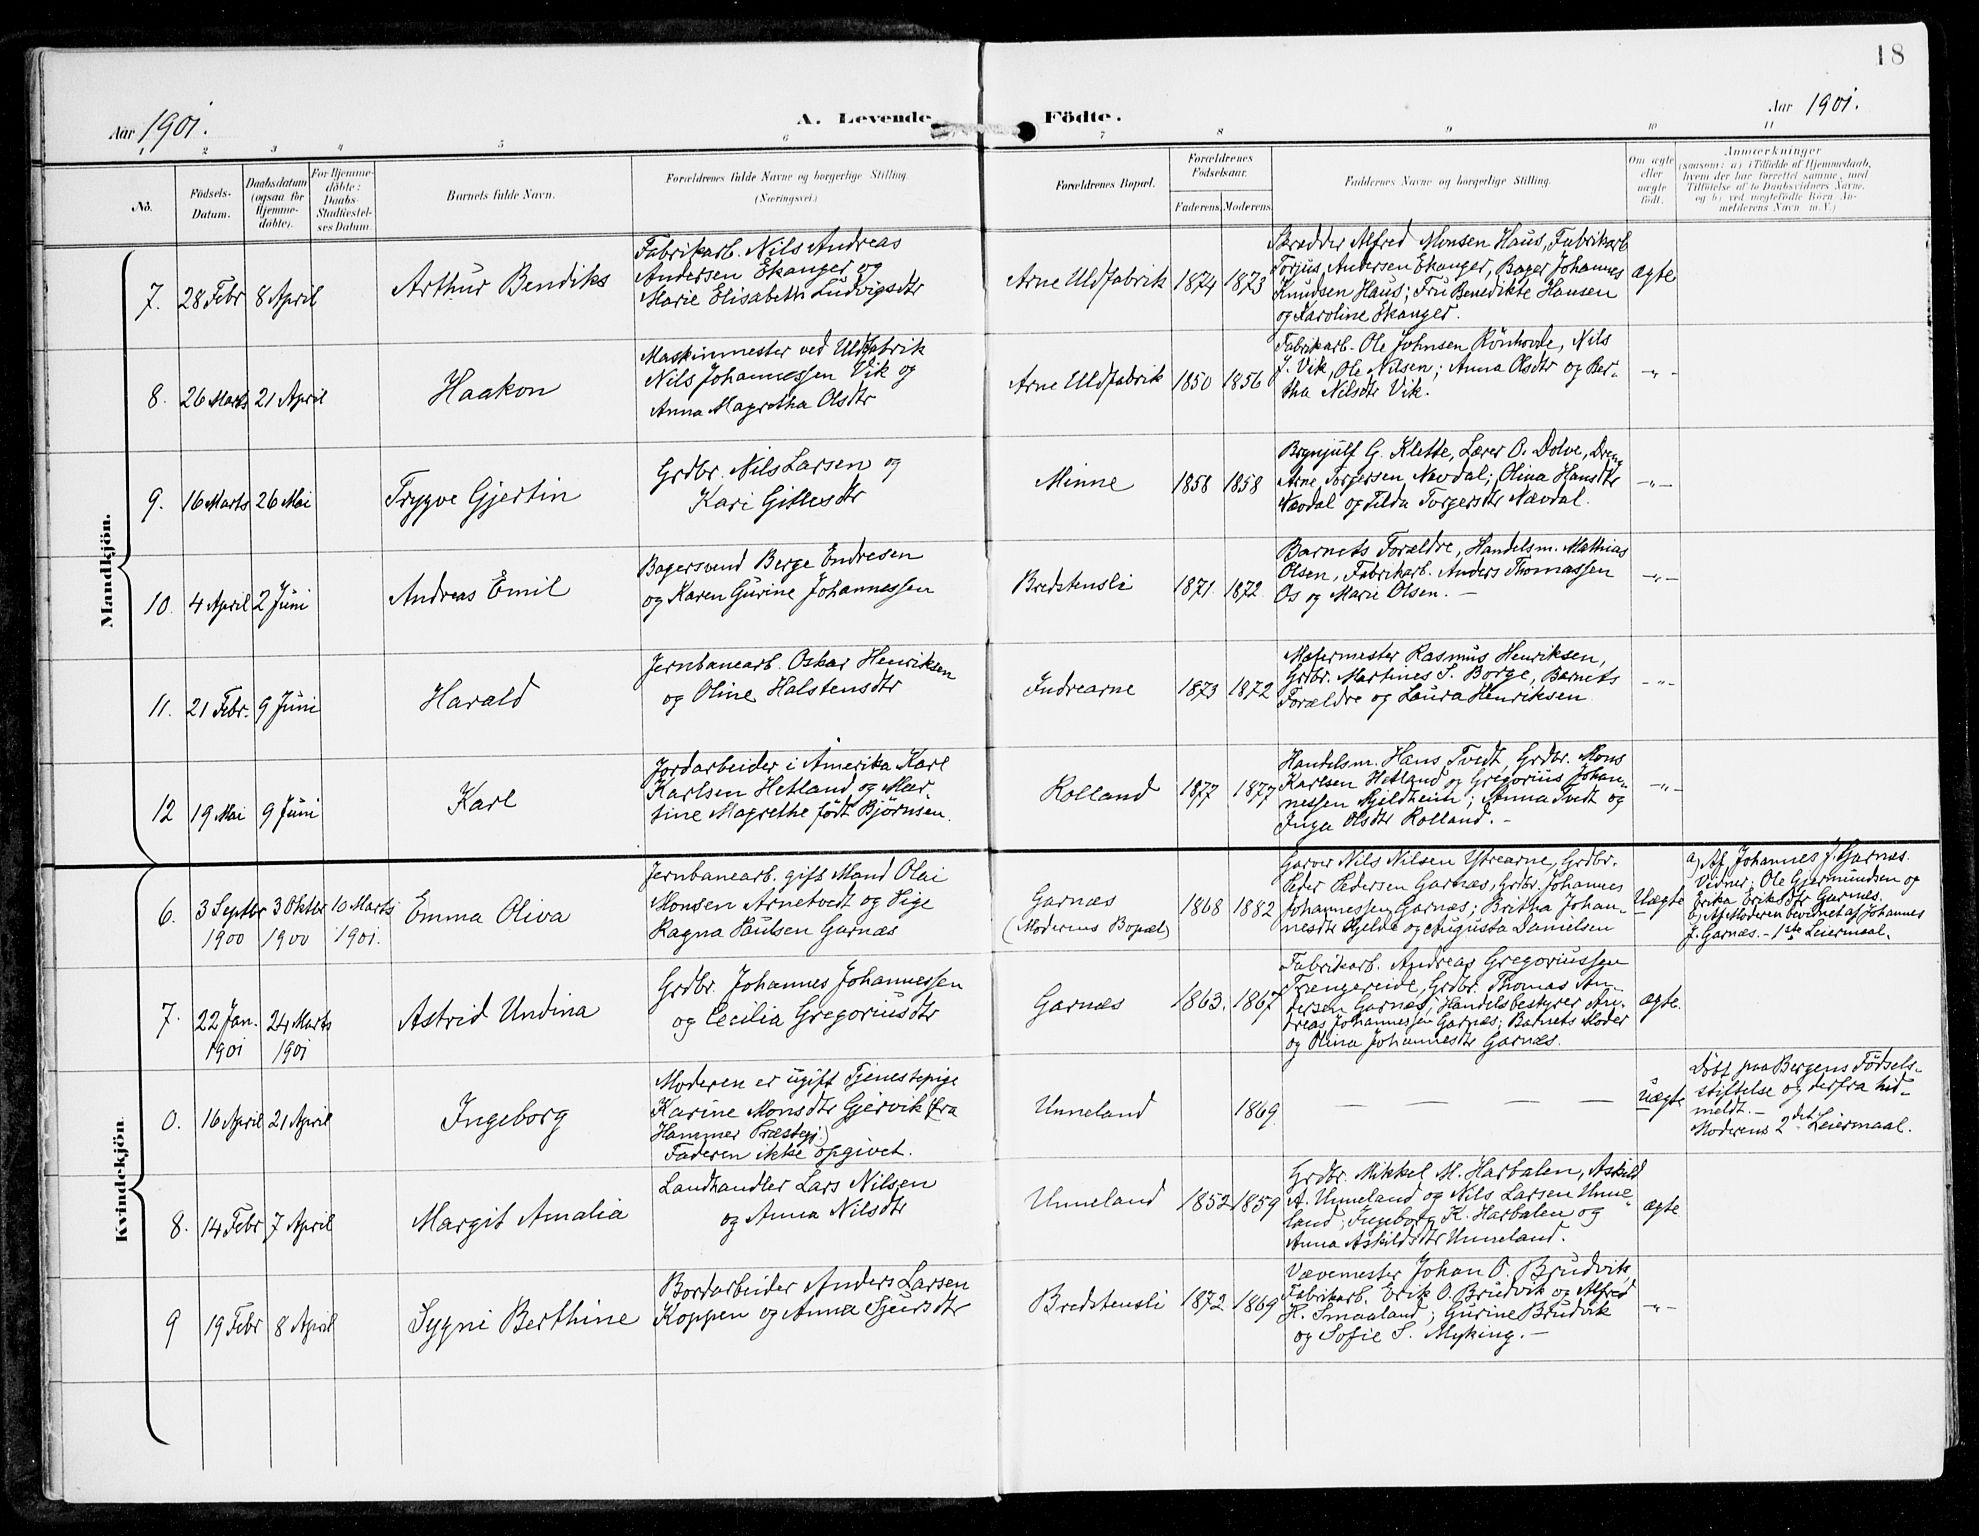 18
Aar 1901.
A. Levende Födte.
Aar 1901.
1 2 3 4 5 6 7 8 9 10 11
No.
Födsels-
Datum.
Daabsdatum
(ogsaa for
Hjemme-
döbte).
For Hjemme-
döbte:
Daabs-
Stadfæstel-
ses Datum.
Barnets fulde Navn.
Forældrenes fulde Navne og borgerlige Stilling.
(Næringsvei.)
Forældrenes Bopæl.
Forældrenes
Födselsaar.
Faderens. Moderens.
Faddernes Navne og borgerlige Stilling.
Om ægte
eller
uægte
födt.
Anmærkninger
(saasom: a) i Tilfælde af Hjemmedaab,
hvem der har forrettet samme, med
Tilföielse af to Daabsvidners Navne,
og b) ved uægtefödte Börn An-
melderens Navn m. V.)
Mandkjön.
7. 28 Febr 8 April
Arthur Bendiks
Fabrikarb. Nils Andreas
Andersen Ekanger og
Marie Elisabeth Ludvigsdtr
Arne Uldfabrik 1874 1873
Skrædder Alfred Monsen Haus, Fabrikarb
Torjus Andersen Ekanger, Bager Johannes
Knudsen Haus; Fru Benedikte Hansen
og Karoline Ekanger.
ægte
8. 26 Marts 21 April
Haakon
Maskinmester ved Uldfabrik
Nils Johannessen Vik og
Anna Magretha Olsdtr
Arne Uldfabrik 1850 1856
Fabrikarb. Ole Johnsen Rönhovde, Nils
J. Vik, Ole Nilsen; Anna Olsdtr og Ber-
tha Nilsdtr Vik.
-"-
9. 16 Marts 26 Mai
Trygve Gjertin
Grdbr. Nils Larsen og
Kari Gittesdtr
Minne 1858 1858
Brynjulf G. Klette, Lærer O. Dolve, Dreng
Arne Torgersen Nævdal; Olina Hansdtr
Nævdal og Tilda Torgersdtr Nævdal.
-"-
10. 4 April 2 Juni
Andreas Emil
Bagersvend Berge Endresen
og Karen Gurine Johannessen
Bredstensli 1871. 1872.
Barnets Forældre, Handelsm. Mathias
Olsen, Fabrikarb. Anders Thomassen
Os og Marie Olsen. -
-"-
11. 21 Febr. 9 Juni
Harald
Jernbanearb. Oskar Henriksen
og Oline Halstensdtr
Indrearne 1873 1872
Malermester Rasmus Henriksen,
Grdbr. Martines S. Borge, Barnets
Forældre og Laura Henriksen
-"-
12 19 Mai 9 Juni
Karl
Jordarbeider i Amerika Karl
Karlsen Hetland og Mar-
tine Magrethe född Björnsen.
Rolland 1877 1877
Handelsm. Hans Tvedt, Grdbr. Mons
Karlsen Hetland og Gregorius Johan-
nessen Mjeldheim; Anna Tvedt og
Inga Olsdtr Rolland. -
-"-
Kvindekjön.
6. 3 Septbr 3 Oktbr 10 Marts
1900 1900 1901.
Emma Oliva
Jernbanearb. gift Mand Olai
Monsen Arnetvedt og Pige
Ragna Paulsen Garnæs
Garnæs
(Moderens Bopæl)
1868 1882
Garver Nils Nilsen Ytrearne, Grdbr.
Peder Pedersen Garnæs, Grdbr. Johannes
Johannessen Garnæs; Britha Johan-
nesdtr Mjelde og Augusta Danielsen
Uægte
a) Af Johannes J. Garnæs.
Vidner: Ole Gjermundsen og
Erika Eriksdtr Garnæs.
b) Af Moderen bevidnet af Johannes
J. Garnæs. - 1ste Leiermaal.
7. 22 Jan. 24 Marts
1901 1901
Astrid Undina
Grdbr. Johannes Johannessen
og Cecilia Gregoriusdtr
Garnæs 1863. 1867
Fabrikarb. Andreas Gregoriussen
Trengereide, Grdbr. Thomas An-
dersen Garnæs, Handelsbestyrer An-
dreas Johannessen Garnæs; Barnets Moder
og Olina Johannesdtr Garnæs.
ægte.
0. 16 April 21 April
Ingeborg
Moderen er ugift Tjenestepige
Karine Monsdtr Gjervik (fra
Hammer Præstegj.)
Faderen ikke opgivet.
Unneland 1869
— — — — —
uægte
Döbt paa Bergens Födsels-
stiftelse og derfra hid-
meldt. -
Moderens 2det Leiermaal.
8. 14 Febr 7 April
Margit Amalia
Landhandler Lars Nilsen
og Anna Nilsdtr
Unneland 1852 1859
Grdbr. Mikkel M. Harbalen, Askild
A. Unneland og Nils Larsen Unne-
land; Ingeborg K. Harbalen og
Anna Askildsdtr Unneland.
ægte
9 19 Febr 8 April
Sygni Berthine
Bordarbeider Anders Larsen
Koppen og Anna Sjursdtr
Bredstensli 1872 1869
Vævemester Johan O. Brudvik,
Fabrikarb. Erik O. Brudvik og Alfred
H. Smaaland; Gurine Brudvik
og Sofie S. Myking. -
-"-